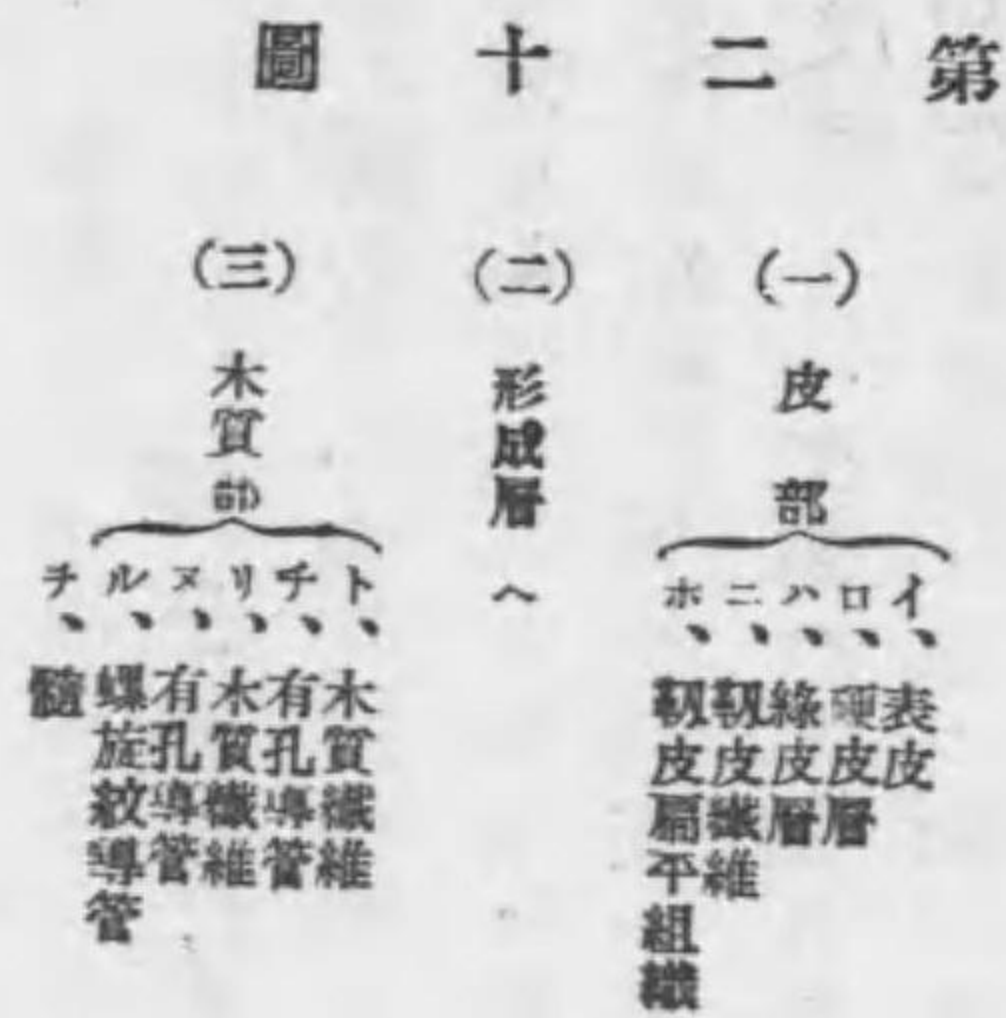 第二十圖
(一) 皮部
イ、表皮
ロ、硬皮層
ハ、綠皮層
ニ、靱皮纖維
ホ、靱皮扁平組織
(二) 形成層 ヘ
(三) 木質部
ト、木質纖維
チ、有孔導管
リ、木質纖維
ヌ、有孔導管
ル、螺旋紋導管
チ、髓